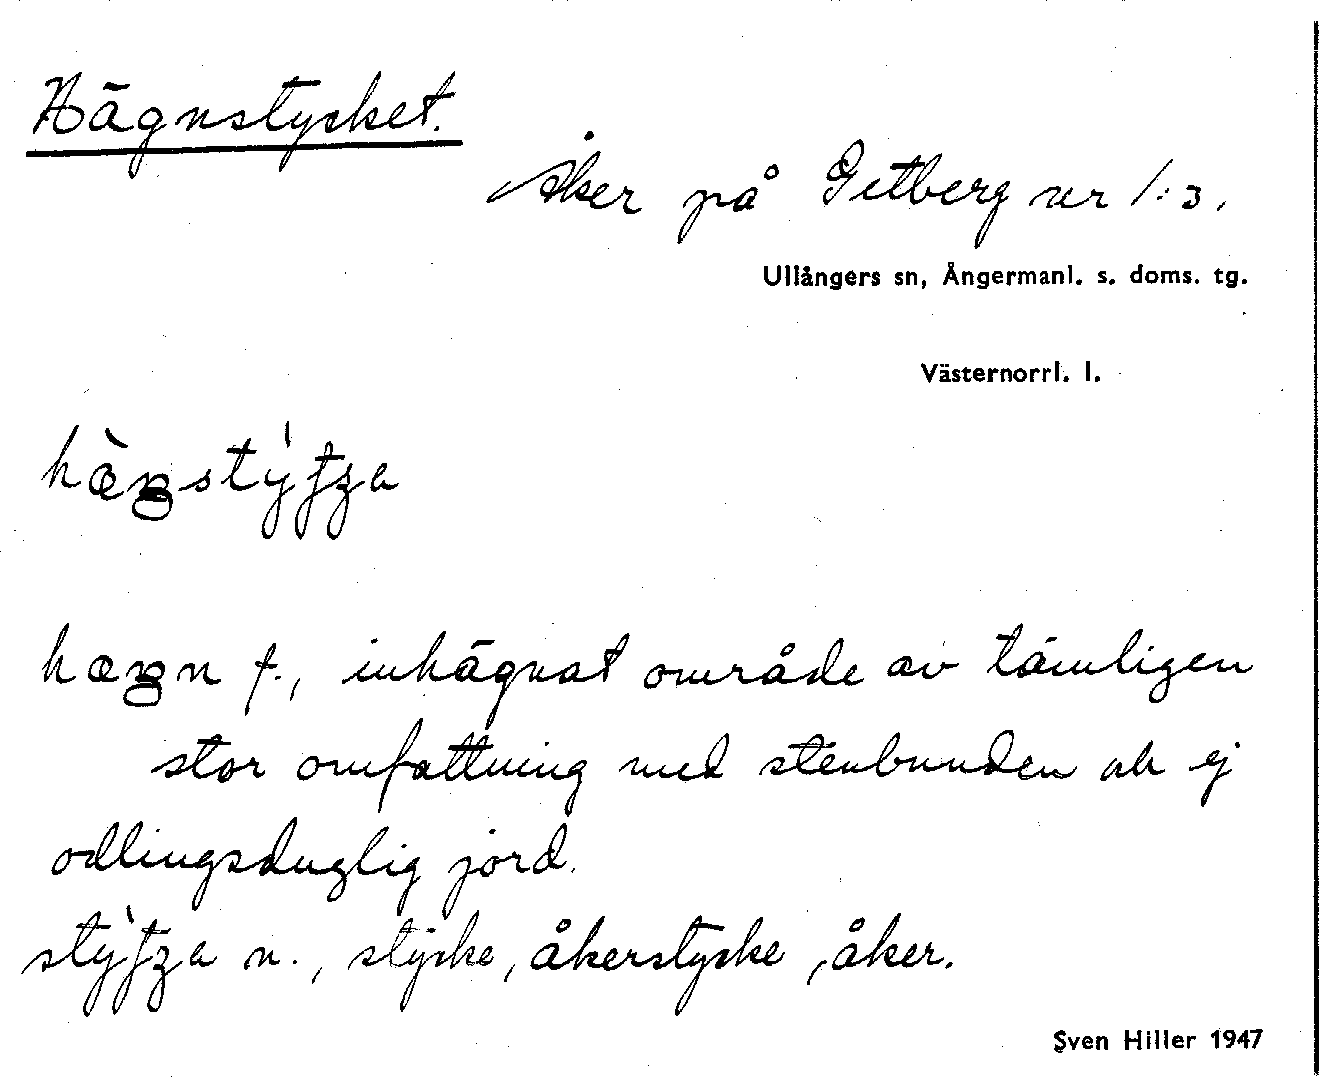 Hägnstycket.
Åker på Getberg nr 1:3.
Ullångers sn, Ångermanl. s. doms. tg.
Västernorrl. l.
f., inhägnat område av tämligen
stor omfattning med stenbunden och ej
odlingsduglig jord.
n., stycke, åkerstycke, åker.
Sven Hiller 1947